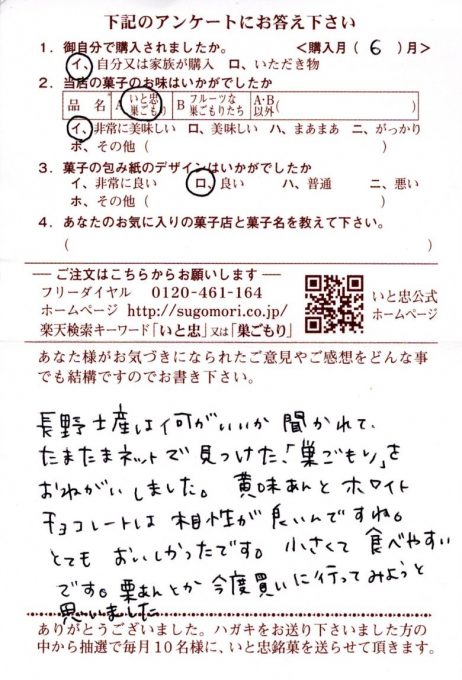 下記のアンケートにお答え下さい
1．御自分で購入されましたか。 ＜購入月（ 6 ）月＞
イ、自分又は家族が購入 ロ、いただき物
2．当店の菓子のお味はいかがでしたか
品 名 A いと忠巣ごもり B フルーツな巣ごもりたち A·B以外( )
イ、非常に美味しい ロ、美味しい ハ、まあまあ ニ、がっかり
ホ、その他（ ）
3．菓子の包み紙のデザインはいかがでしたか
イ、非常に良い ロ、良い ハ、普通 ニ、悪い
ホ、その他（ ）
4．あなたのお気に入りの菓子店と菓子名を教えて下さい。
（ ）
ご注文はこちらからお願いします
フリーダイヤル 0120-461-164
ホームページ http://sugomori.co.jp/
楽天検索キーワード「いと忠」又は「巣ごもり」
いと忠公式
ホームページ
あなた様がお気づきになられたご意見やご感想をどんな事
でも結構ですのでお書き下さい。
長野土産は何がいいか聞かれて、
たまたまネットで見つけた、「巣ごもり」を
おねがいしました。 黄味あんとホワイト
チョコレートは相性が良いんですね。
とてもおいしかったです。小さくて食べやすい
です。栗あんとか今度買いに行ってみようと
思いました
ありがとうございました。ハガキをお送り下さいました方の
中から抽選で毎月10名様に、いと忠銘菓を送らせて頂きます。